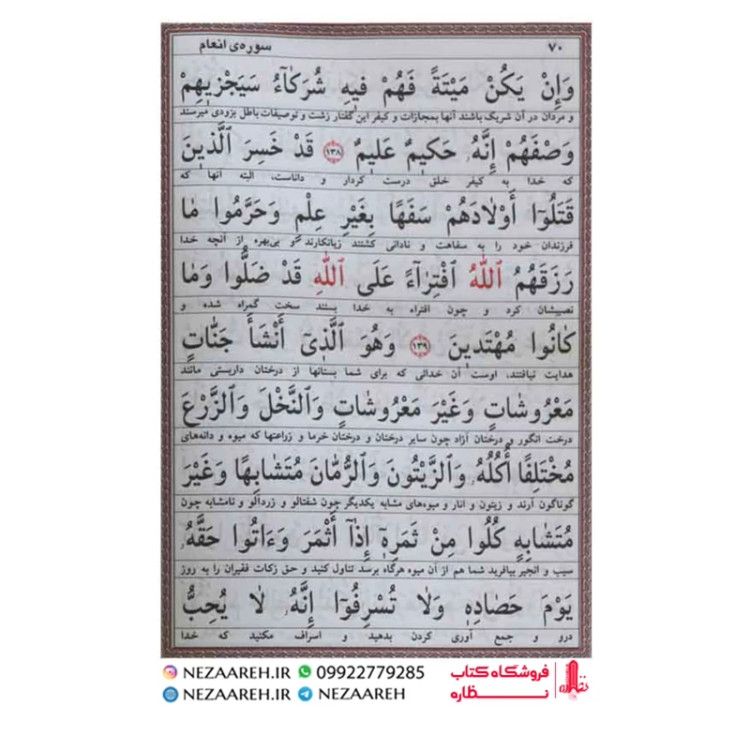 سوره‌ی انعام
۷۰
وَإِنْ يَكُنْ مَيْتَةً فَهُمْ فيهِ شُرَكآءُ سَيَجْزيهِمْ
و مردان در آن شریک باشند آنها بمجازات و کیفر این گفتار زشت و توصیفات باطل بزودی میرسند
وَصْفَهُمْ إِنَّهُ حَكيمٌ عَليمٌ ﴿۱۳۸﴾ قَدْ خَسِرَ الَّذينَ
که خدا به کیفر خلق درست کردار و داناست، البته آنها که
قَتَلُوٓا أَوْلادَهُمْ سَفَهًا بِغَيْرِ عِلْمٍ وَحَرَّمُوا ما
فرزندان خود را به سفاهت و نادانی کشتند زیانکارند و بی‌بهره از آنچه خدا
رَزَقَهُمُ اللّٰهُ افْتِرآءً عَلَى اللّٰهِ قَدْ ضَلُّوا وَما
نصیبشان کرد و چون افتراء به خدا بستند سخت گمراه شده و
كانُوا مُهْتَدينَ ﴿۱۳۹﴾ وَهُوَ الَّذيٓ أَنْشَأَ جَنّاتٍ
هدایت نیافتند، اوست آن خدائی که برای شما بستانها از درختان داربستی مانند
مَعْرُوشاتٍ وَغَيْرَ مَعْرُوشاتٍ وَالنَّخْلَ وَالزَّرْعَ
درخت انگور و درختان آزاد چون سایر درختان و درختان خرما و زراعتها که میوه و دانه‌های
مُخْتَلِفًا أُكُلُهُ وَالزَّيْتُونَ وَالرُّمّانَ مُتَشابِهًا وَغَيْرَ
گوناگون آرند و زیتون و انار و میوه‌های مشابه یکدیگر چون شفتالو و زردآلو و نامشابه چون
مُتَشابِهٍ كُلُوا مِنْ ثَمَرِهٓ إِذآ أَثْمَرَ وَءَاتُوا حَقَّهُ
سیب و انجیر بیافرید شما هم از آن میوه هرگاه برسد تناول کنید و حق زکات فقیران را به روز
يَوْمَ حَصادِهِ وَلا تُسْرِفُوٓا إِنَّهُ لا يُحِبُّ
درو و جمع آوری کردن بدهید و اسراف مکنید که خدا
NEZAAREH.IR 09922779285
NEZAAREH.IR NEZAAREH
فروشگاه کتاب
نظاره